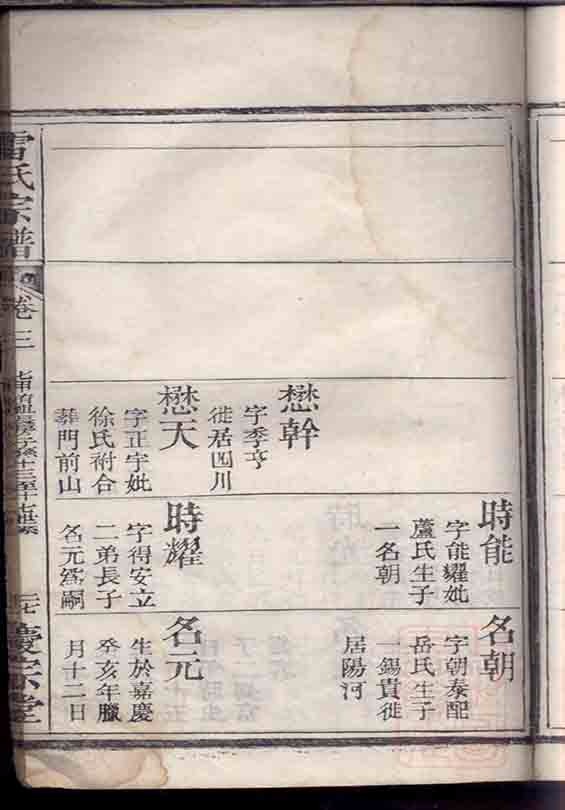 懋幹
字季亨
徙居四川
懋天
字正宇妣
徐氏祔合
葬門前山
時能
字能耀妣
蘆氏生子
一名朝
時耀
字得安立
二弟長子
名元為嗣
名朝
字朝泰配
岳氏生子
一錫貴徙
居陽河
名元
生於嘉慶
癸亥年臘
月十二日
雷氏宗譜
卷三
慶宗堂